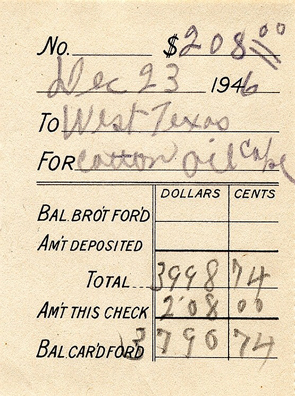 No. $208.00
Dec 23 1946
To West Texas
For cotton oil
DOLLARS CENTS
BAL. BRO'T FOR'D
AM'T DEPOSITED
TOTAL 3998 74
AM'T THIS CHECK 208 00
BAL. CAR'D FOR'D 3790 74